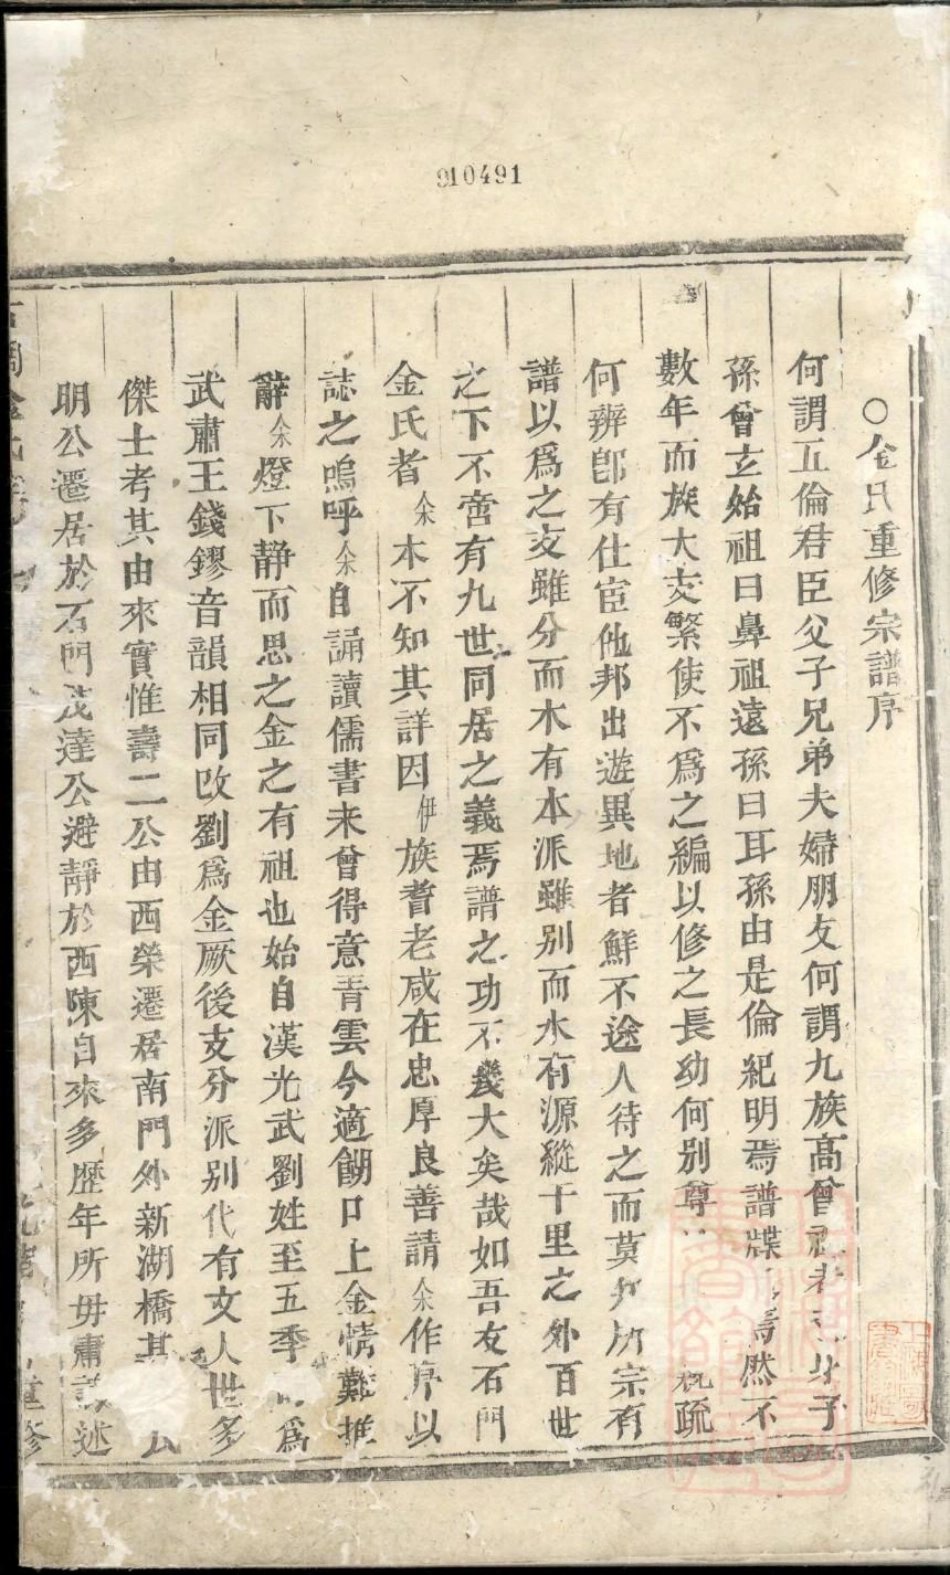 910491
○金氏重修宗譜序
何謂五倫君臣父子兄弟夫婦朋友何謂九族高曾祖考己身子
孫曾玄始祖曰鼻祖遠孫曰耳孫由是倫紀明焉譜牒焉然不
數年而族大支繁使不爲之編以修之長幼何別尊親疏
何辨卽有仕宦他邦出遊異地者鮮不途人待之而莫宗有
譜以爲之支雖分而木有本派雖别而水有源縱千里之外百世
之下不啻有九世同居之義焉譜之功不㡬大矣哉如吾友石門
金氏者余本不知其詳因伊族耆老咸在忠厚良善請余作序以
誌之嗚呼余自誦讀儒書未曾得意青雲今適餬口上金情難推
辭余燈下静而思之金之有祖也始自漢光武劉姓至五季爲
武肅王錢鏐音韻相同改劉爲金厥後支分派别代有文人世多
傑士考其由來實惟壽二公由西榮遷居南門外新湖橋其公
明公遷居於石門茂達公避靜於西陳自來多歷年所毋庸述